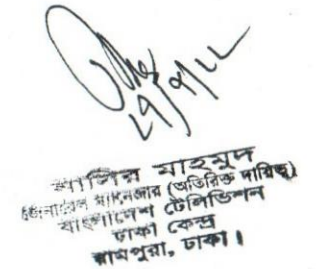 ২৭/৭/২২
নাসির মাহমুদ
জেনারেল ম্যানেজার (অতিরিক্ত দায়িত্ব)
বাংলাদেশ টেলিভিশন
ঢাকা কেন্দ্র
রামপুরা, ঢাকা।